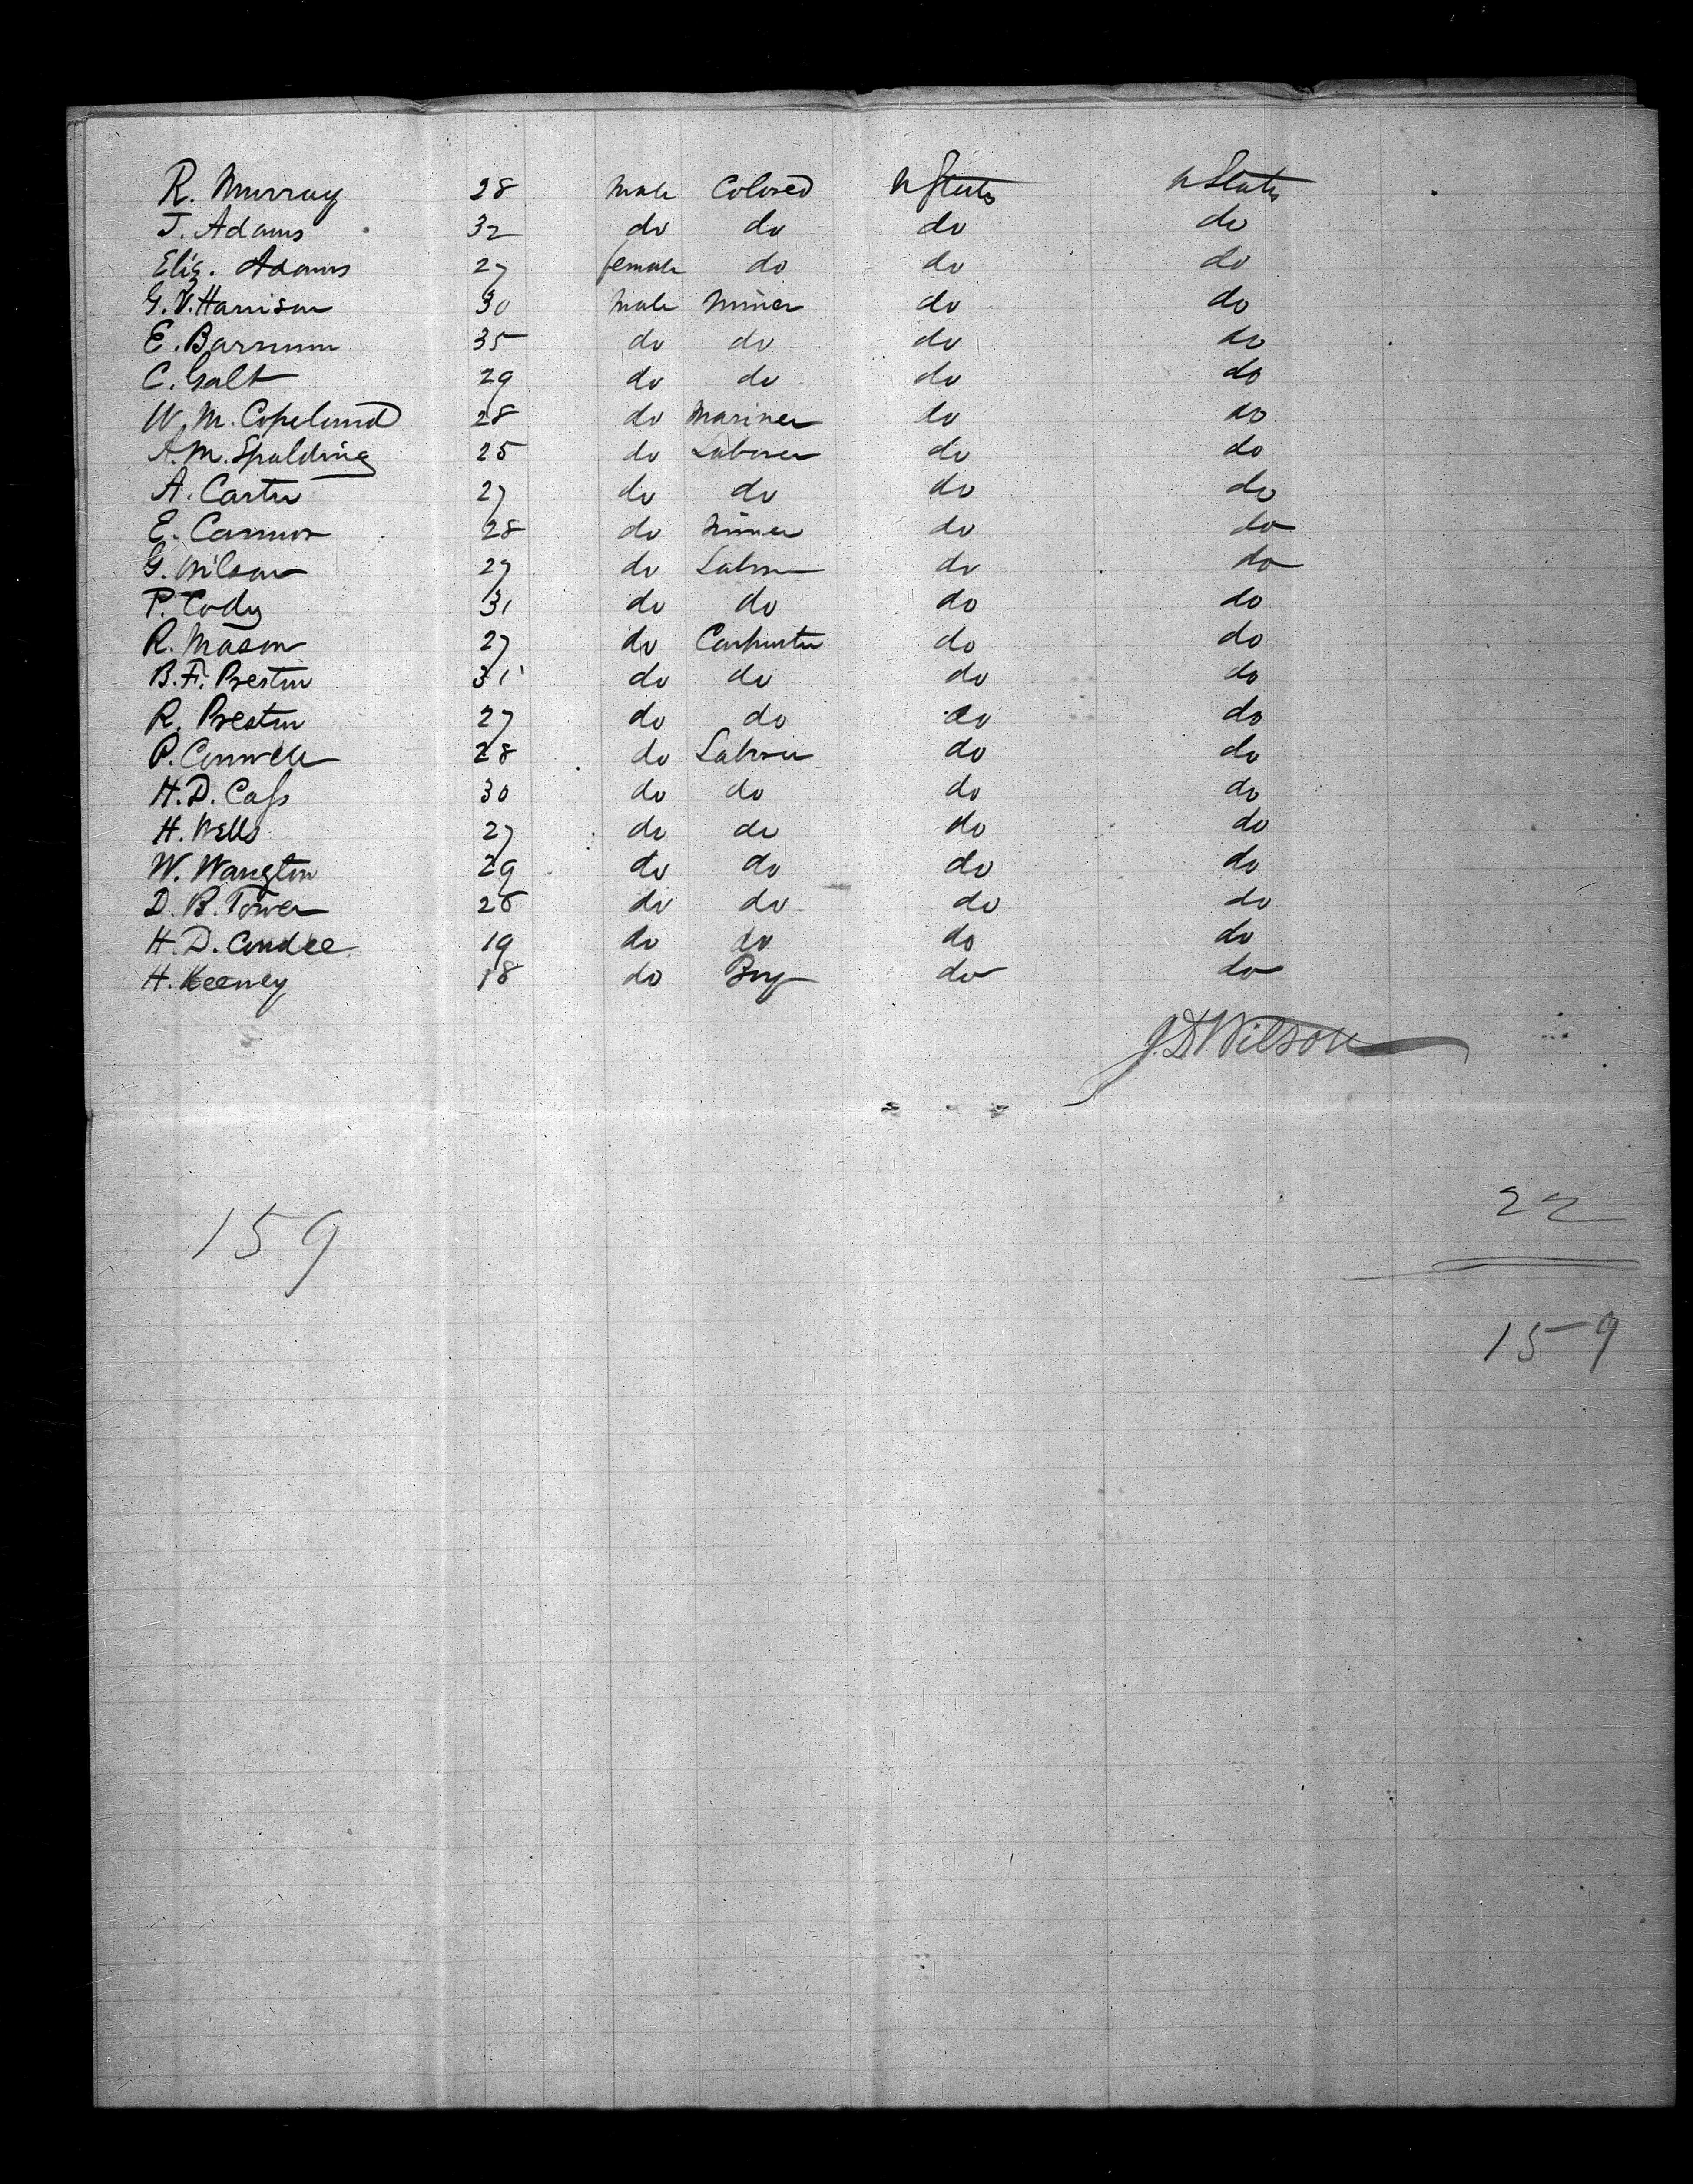 R. Murray 28 Male Colored U States U States
J. Adams 32 do do do do
Eliz. Adams 27 female do do do
G. V. Harrison 30 Male Miner do do
E. Barnum 35 do do do do
C. Galt 29 do do do do
W. M. Copeland 28 do Mariner do do
A. M. Spalding 25 do Laborer do do
A. Carter 27 do do do do
E. Connor 28 do Miner do do
G. Wilson 27 do Laborer do do
P. Cody 31 do do do do
R. Mason 27 do Carpenter do do
B. F. Preston 31 do do do do
R. Preston 27 do do do do
P. Connell 28 do Laborer do do
H. D. Cass 30 do do do do
H. Wells 27 do do do do
W. Wangton 29 do do do do
D. B. Tower 26 do do do do
H. D. Condee 19 do do do do
H. Keeney 18 do Boy do do
J. D. Wilson
22
159
159